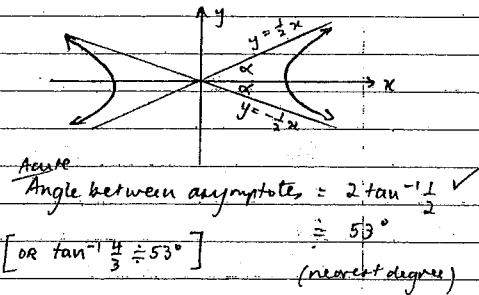 y
y = 1/2 x
α
α
x
y = -1/2 x
Acute
Angle between asymptotes = 2 tan⁻¹ 1/2 ✓
≑ 53°
[OR tan⁻¹ 4/3 ≑ 53°]
(nearest degree)